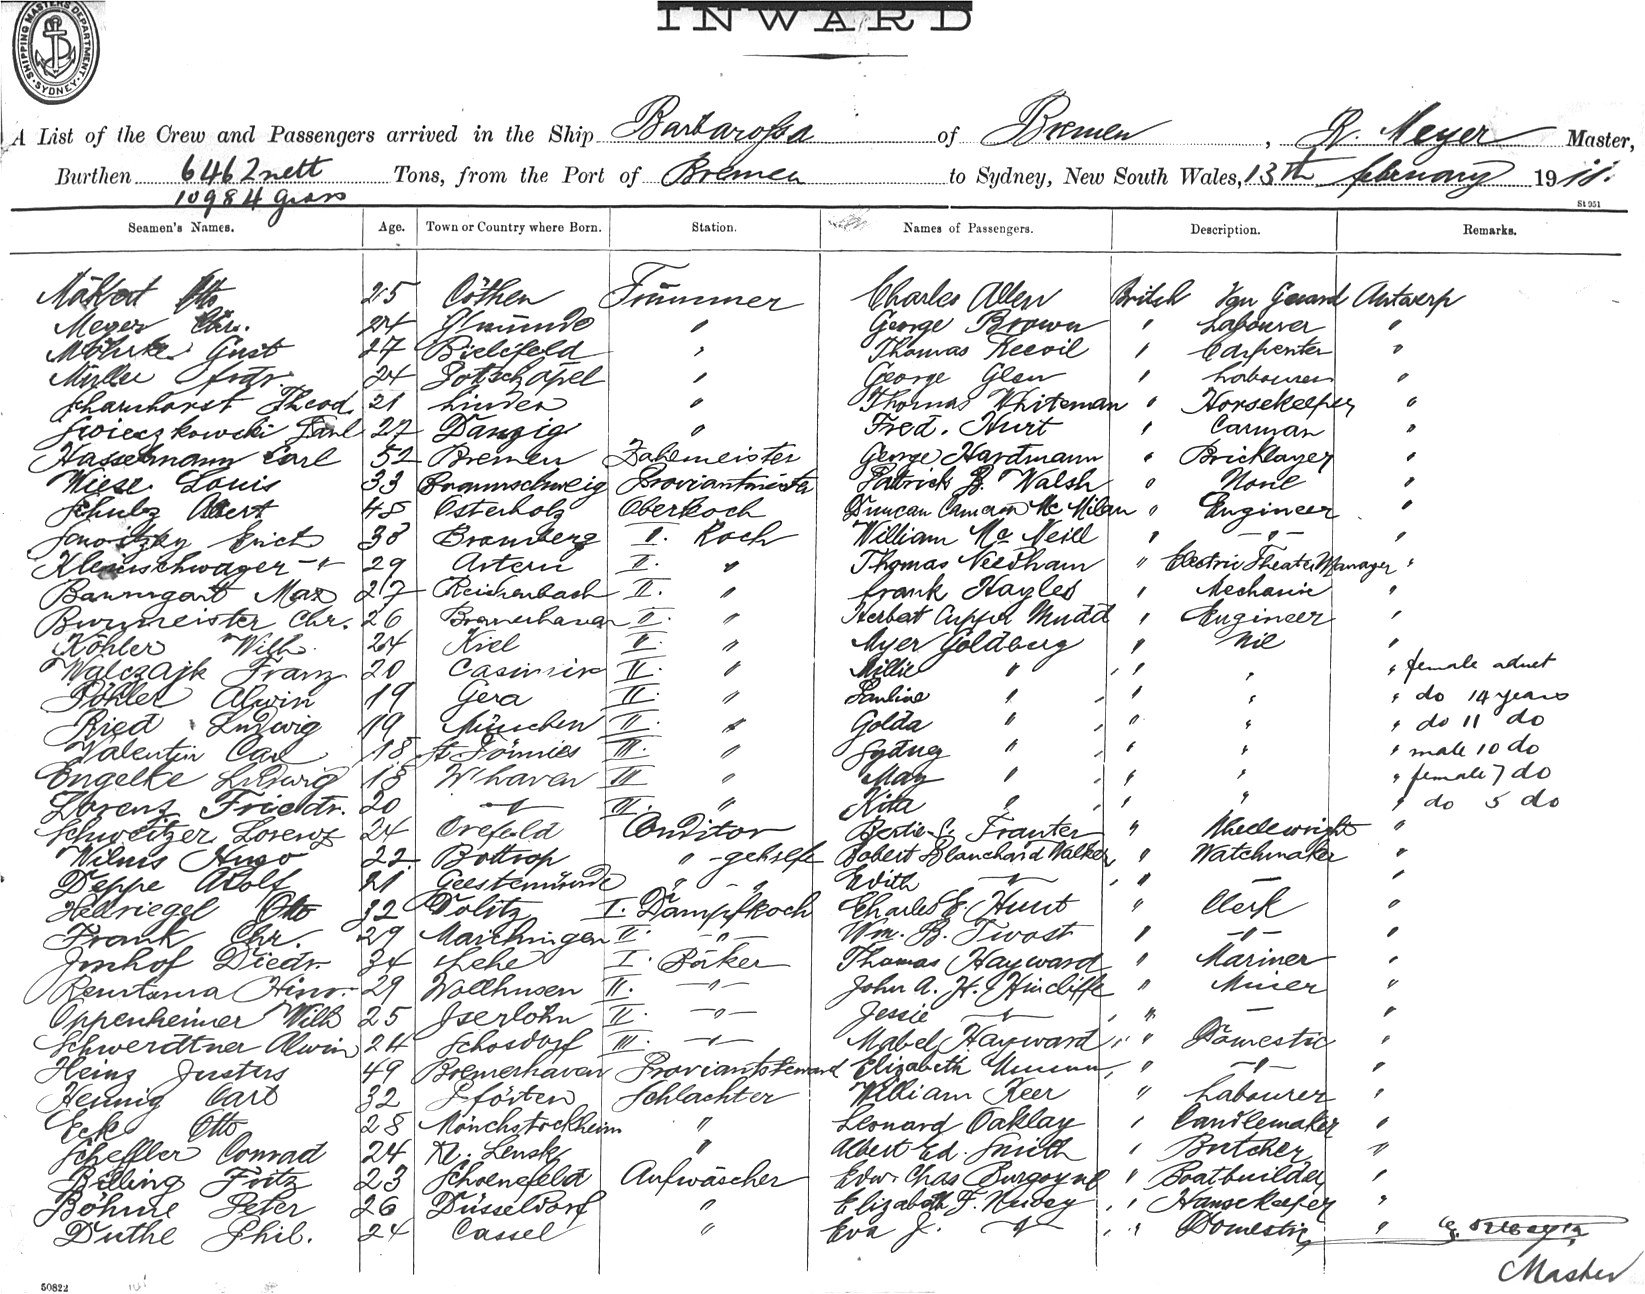 SHIPPING MASTERS DEPARTMENT · SYDNEY ·
INWARD
A List of the Crew and Passengers arrived in the Ship Barbarossa of Bremen, R. Meyer Master,
Burthen 6462 nett Tons, from the Port of Bremen to Sydney, New South Wales, 13th february 1911.
10984 gross
St 951
Seamen's Names. Age. Town or Country where Born. Station. Names of Passengers. Description. Remarks.
Otto 25 Cöthen Trimmer Charles Allen British Antwerp
Meyer Chr. 24 " George Brown " Labourer "
Gust 27 Bielefeld " Thomas " Carpenter "
Müller 24 " George Glen " Labourer "
Scharnhorst Theod. 21 Linden " Thomas Whiteman " Horsekeeper "
Paul 27 Danzig " Fred. Hurt " Carman "
Hasselmann Carl 52 Bremen Zahlmeister George Hardtmann " Bricklayer "
Wiese Louis 33 Braunschweig Proviantmeister Patrick B. Walsh " None "
Schulz Albert 45 Osterholz Oberkoch Duncan Cameron Mc Milan " Engineer "
Erich 38 Bromberg I. Koch William Mc Neill " -"- "
Kleinschwager -"- 29 Artern II. " Thomas Needham " Electric Theater Manager "
Baumgart Max 27 Reichenbach II. " Frank Hayles " Mechanic "
Burmeister Chr. 26 Bremerhaven II. " Herbert Mudd " Engineer "
Köhler Wilh. 24 Kiel II. " Myer Goldberg " Nil "
Walczajk Franz 20 Casimir II. " Millie " " " " female adult
Alwin 19 Gera II. " Pauline " " " " do 14 years
Ried Ludwig 19 München II. " Golda " " " " do 11 do
Valentin Carl 18 St Tönnies III. " Sydney " " " " male 10 do
Engelke Ludwig 18 W'haven III " May " " " " female 7 do
Lorenz Friedr. 20 -"- III. " Rita " " " " do 5 do
Schweitzer Lorenz 24 Crefeld Conditor Bertie Franter " Wheelwright "
Wilms Hugo 22 Bottrop " -gehilfe Robert Blanchard Walker " Watchmaker "
Deppe Adolf 21 Geestemünde " - " Edith -"- " - "
Hellriegel Otto 32 Dölitz I. Dampfkoch Charles E. Hunt " Clerk "
Frank Chr. 29 Maichingen II. -"- Wm. B. Twost " -"- "
Imhof Diedr. 34 Lehe I. Bäker Thomas Hayward " Mariner "
Hinr. 29 Wollhusen II. -"- John A. H. Hincliffe " Miner "
Oppenheimer Wilh 25 Iserlohn II. -"- Jessie -"- " - "
Schwerdtner Alwin 24 Schosdorf III. -"- Mabel Hayward " Domestic "
Heinz Justus 49 Bremerhaven Proviantsteward Elizabeth " -"- "
Hennig Carl 32 Pförten Schlachter William Keer " Labourer "
Eck Otto 28 Mönchstockheim " Leonard Oaklay " Candlemaker "
Scheffler Conrad 24 Kl. Lensk " Albert Ed. Smith " Butcher "
Billing Fritz 23 Schoenefeld Aufwäscher Edw. Chas Burgoyne " Boatbuilder "
Böhme Peter 26 Düsseldorf " Elizabeth F. " Housekeeper "
Duthe Phil. 24 Cassel " Eva J. -"- " Domestic "
Master
50822